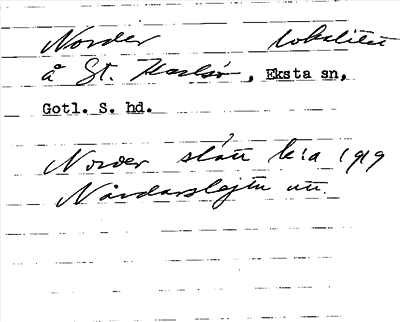 Norder lokalitet
å St. Karlsö, Eksta sn,
Gotl. S. hd.
Norder slätt k:a 1919
Nårdarslejtu utt.